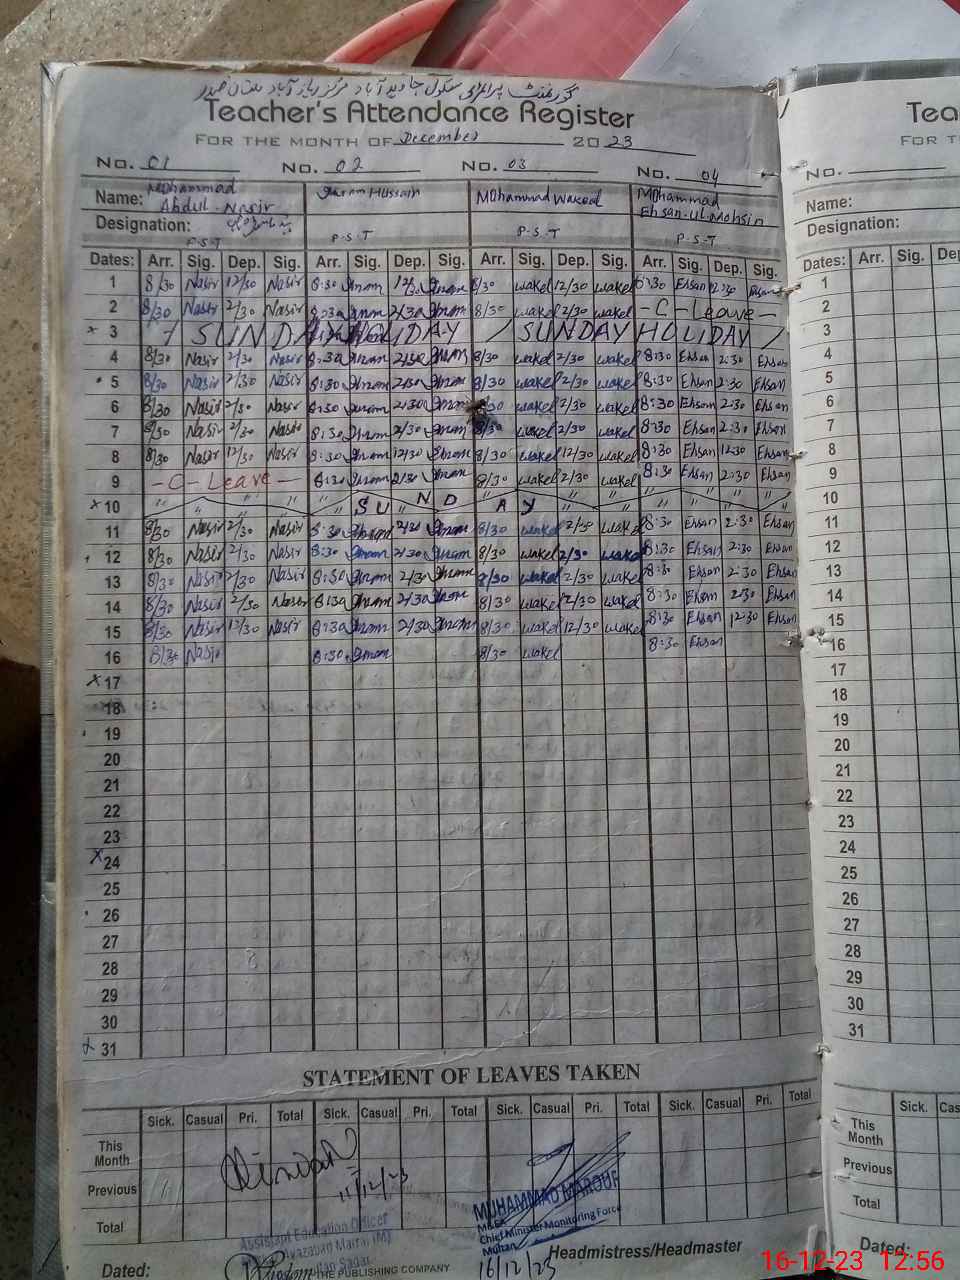 گورنمنٹ پرائمری سکول جاوید آباد مرکز
Teacher's Attendance Register
FOR THE MONTH OF December 2023
No. 01 No. 02 No. 03 No. 04
Name: Mohammad Abdul-Nasir Hussain Mohammad Wakeel Mohammad Ehsan-Ul-Mohsin
Designation: P-S-T P-S-T P-S-T P-S-T
Dates: Arr. Sig. Dep. Sig. Arr. Sig. Dep. Sig. Arr. Sig. Dep. Sig. Arr. Sig. Dep. Sig.
1 8/30 Nasir 12/30 Nasir 8:30 12/30 8/30 wakel 12/30 wakel 8:30 Ehsan 12:30 Ehsan
2 8/30 Nasir 2/30 Nasir 8:30 2/30 8/30 wakel 2/30 wakel -C-Leave-
x 3 SUNDAY HOLIDAY / SUNDAY HOLIDAY /
4 8/30 Nasir 2/30 Nasir 8:30 2/30 8/30 wakel 2/30 wakel 8:30 Ehsan 2:30 Ehsan
5 8/30 Nasir 2/30 Nasir 8:30 2/30 8/30 wakel 2/30 wakel 8:30 Ehsan 2:30 Ehsan
6 8/30 Nasir 2/30 Nasir 8:30 2/30 8/30 wakel 2/30 wakel 8:30 Ehsan 2:30 Ehsan
7 8/30 Nasir 2/30 Nasir 8:30 2/30 8/30 wakel 2/30 wakel 8:30 Ehsan 2:30 Ehsan
8 8/30 Nasir 12/30 Nasir 8:30 12/30 8/30 wakel 12/30 wakel 8:30 Ehsan 12:30 Ehsan
9 -C-Leave- 8:30 2/30 8/30 wakel 2/30 wakel 8:30 Ehsan 2:30 Ehsan
x 10 SUNDAY
11 8/30 Nasir 2/30 Nasir 8:30 2/30 8/30 wakel 2/30 wakel 8:30 Ehsan 2:30 Ehsan
12 8/30 Nasir 2/30 Nasir 8:30 2/30 8/30 wakel 2/30 wakel 8:30 Ehsan 2:30 Ehsan
13 8/30 Nasir 2/30 Nasir 8:30 2/30 8/30 wakel 2/30 wakel 8:30 Ehsan 2:30 Ehsan
14 8/30 Nasir 2/30 Nasir 8:30 2/30 8/30 wakel 2/30 wakel 8:30 Ehsan 2:30 Ehsan
15 8/30 Nasir 12/30 Nasir 8:30 2/30 8/30 wakel 12/30 wakel 8:30 Ehsan 12:30 Ehsan
16 8/30 Nasir 8:30 8/30 wakel 8:30 Ehsan
x 17
18
19
20
21
22
23
x 24
25
26
27
28
29
30
x 31
STATEMENT OF LEAVES TAKEN
Sick. Casual Pri. Total Sick. Casual Pri. Total Sick. Casual Pri. Total Sick. Casual Pri. Total
This Month
Previous
11/12/23
Total
Assistant Education Officer
MUHAMMAD MAROUF
MEA
Chief Minister Monitoring Force
Multan
16/12/23
Headmistress/Headmaster
Dated:
THE PUBLISHING COMPANY
Tea
FOR T
No.
Name:
Designation:
Dates: Arr. Sig. D
1
2
3
4
5
6
7
8
9
10
11
12
13
14
15
16
17
18
19
20
21
22
23
24
25
26
27
28
29
30
31
Sick. Cas
This Month
Previous
Total
Dated:
16-12-23 12:56